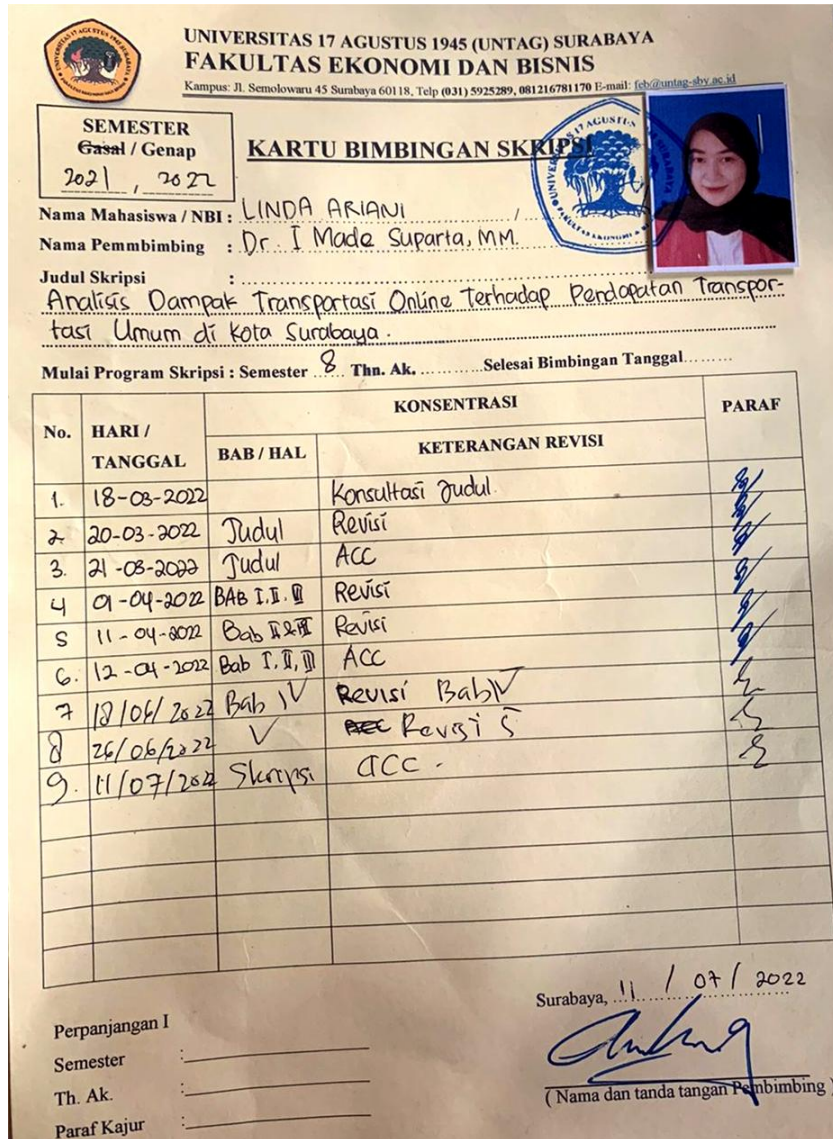 UNIVERSITAS 17 AGUSTUS 1945 (UNTAG) SURABAYA
FAKULTAS EKONOMI DAN BISNIS
Kampus: Jl. Semolowaru 45 Surabaya 60118, Telp (031) 5925289, 081216781170 E-mail: feb@untag-sby.ac.id
SEMESTER
Gasal / Genap
2021 , 2022
KARTU BIMBINGAN SKRIPSI
Nama Mahasiswa / NBI : LINDA ARIANI /
Nama Pemmbimbing : Dr. I Made Suparta, MM.
Judul Skripsi :
Analisis Dampak Transportasi Online Terhadap Pendapatan Transpor-
tasi Umum di Kota Surabaya.
Mulai Program Skripsi : Semester 8 Thn. Ak. ............ Selesai Bimbingan Tanggal.........
No. HARI / TANGGAL KONSENTRASI PARAF
BAB / HAL KETERANGAN REVISI
1. 18-03-2022 Konsultasi Judul
2. 20-03-2022 Judul Revisi
3. 21-03-2022 Judul ACC
4 01-04-2022 BAB I, II, III Revisi
5 11-04-2022 Bab II & III Revisi
6. 12-04-2022 Bab I, II, III ACC
7 18/06/2022 Bab IV Revisi Bab IV
8 26/06/2022 V Revisi 5
9. 11/07/2022 Skripsi acc.
Surabaya, 11 / 07 / 2022
Perpanjangan I
Semester :
Th. Ak. :
Paraf Kajur :
( Nama dan tanda tangan Pembimbing )